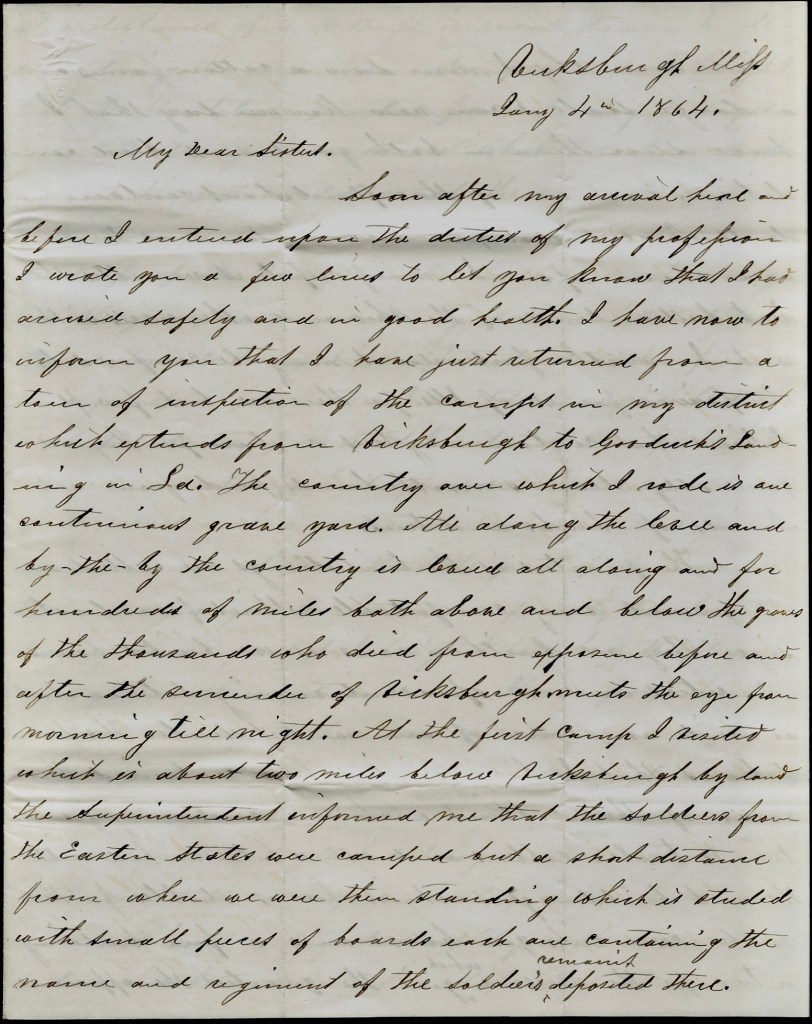 Vicksburgh Miss
Jany 4th 1864.
My Dear Sister.
Soon after my arrival here and
before I entered upon the duties of my profession
I wrote you a few lines to let you know that I had
arrived safely and in good health. I have now to
inform you that I have just returned from a
tour of inspection of the camps in my district
which extends from Vicksburgh to Goodrich's Land-
ing in La. The country over which I rode is one
continuous grave yard. All along the levee and
by-the-by the country is leveed all along and for
hundreds of miles both above and below the graves
of the thousands who died from exposure before and
after the surrender of Vicksburgh meets the eye from
morning till night. At the first camp I visited
which is about two miles below Vicksburgh by land
the Superintendent informed me that the soldiers from
the Eastern States were camped but a short distance
from where we were then standing which is studed
with small pieces of boards each one containing the
name and regiment of the soldier's remains deposited there.